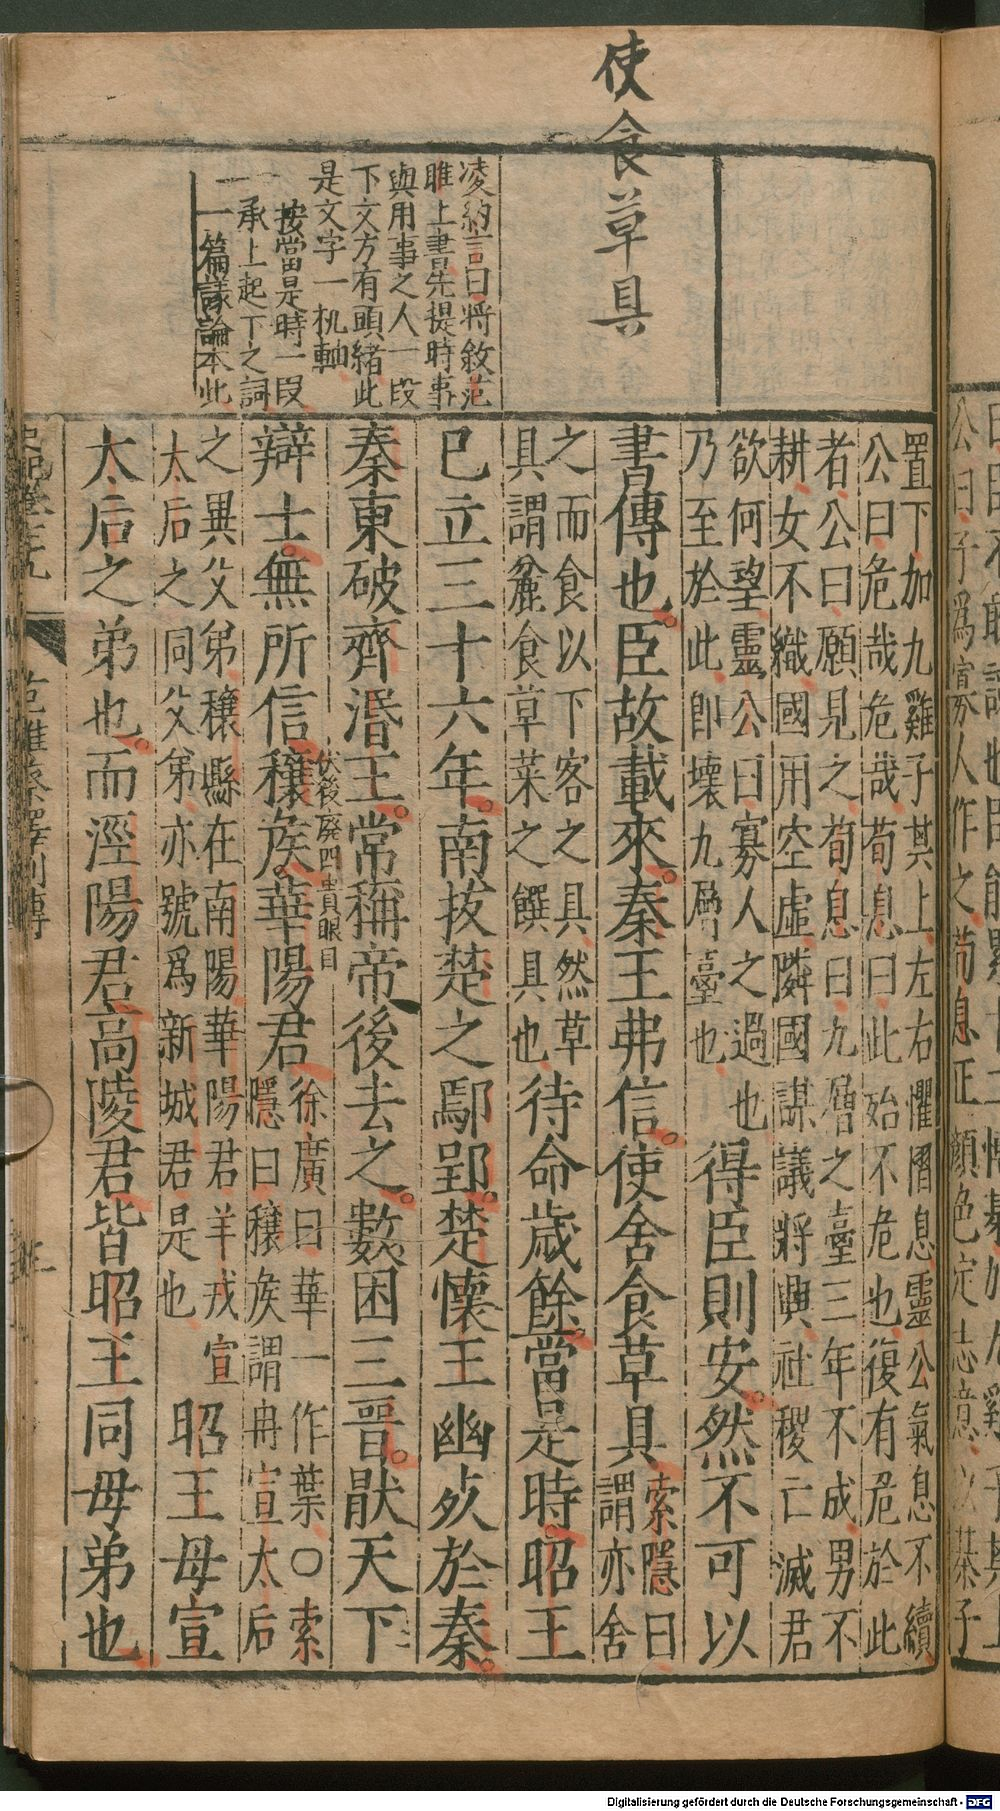 使食草具
凌約言曰將敘范
雎上書先提時事
與用事之人一段
下文方有頭緒此
是文字一机軸
按當是時一段
承上起下之詞
一篇議論本此
置下加九雞子其上左右懼慴息靈公氣息不續
公曰危哉危哉荀息曰此殆不危也復有危於此
者公曰願見之荀息曰九層之臺三年不成男不
耕女不織國用空虛隣國謀議將興社稷亡滅君
欲何望靈公曰寡人之過也
乃至於此即壞九層臺也
得臣則安然不可以
書傳也臣故載來秦王弗信使舍食草具
索隱曰
謂亦舍
之而食以下客之具然草
具謂麄食草菜之饌具也
待命歲餘當是時昭王
已立三十六年南拔楚之鄢郢楚懷王幽死於秦
秦東破齊湣王常稱帝後去之數困三晋猒天下
伏後廢四貴眼目
辯士無所信穰侯華陽君
徐廣曰華一作葉○索
隱曰穰侯謂冉宣太后
之異父弟穰縣在南陽華陽君羊戎宣
太后之同父弟亦號爲新城君是也
昭王母宣
太后之弟也而涇陽君高陵君皆昭王同母弟也
范雎蔡澤列傳
公曰子爲寡人作之荀息正顏色定志意以棊子
Digitalisierung gefördert durch die Deutsche Forschungsgemeinschaft - DFG